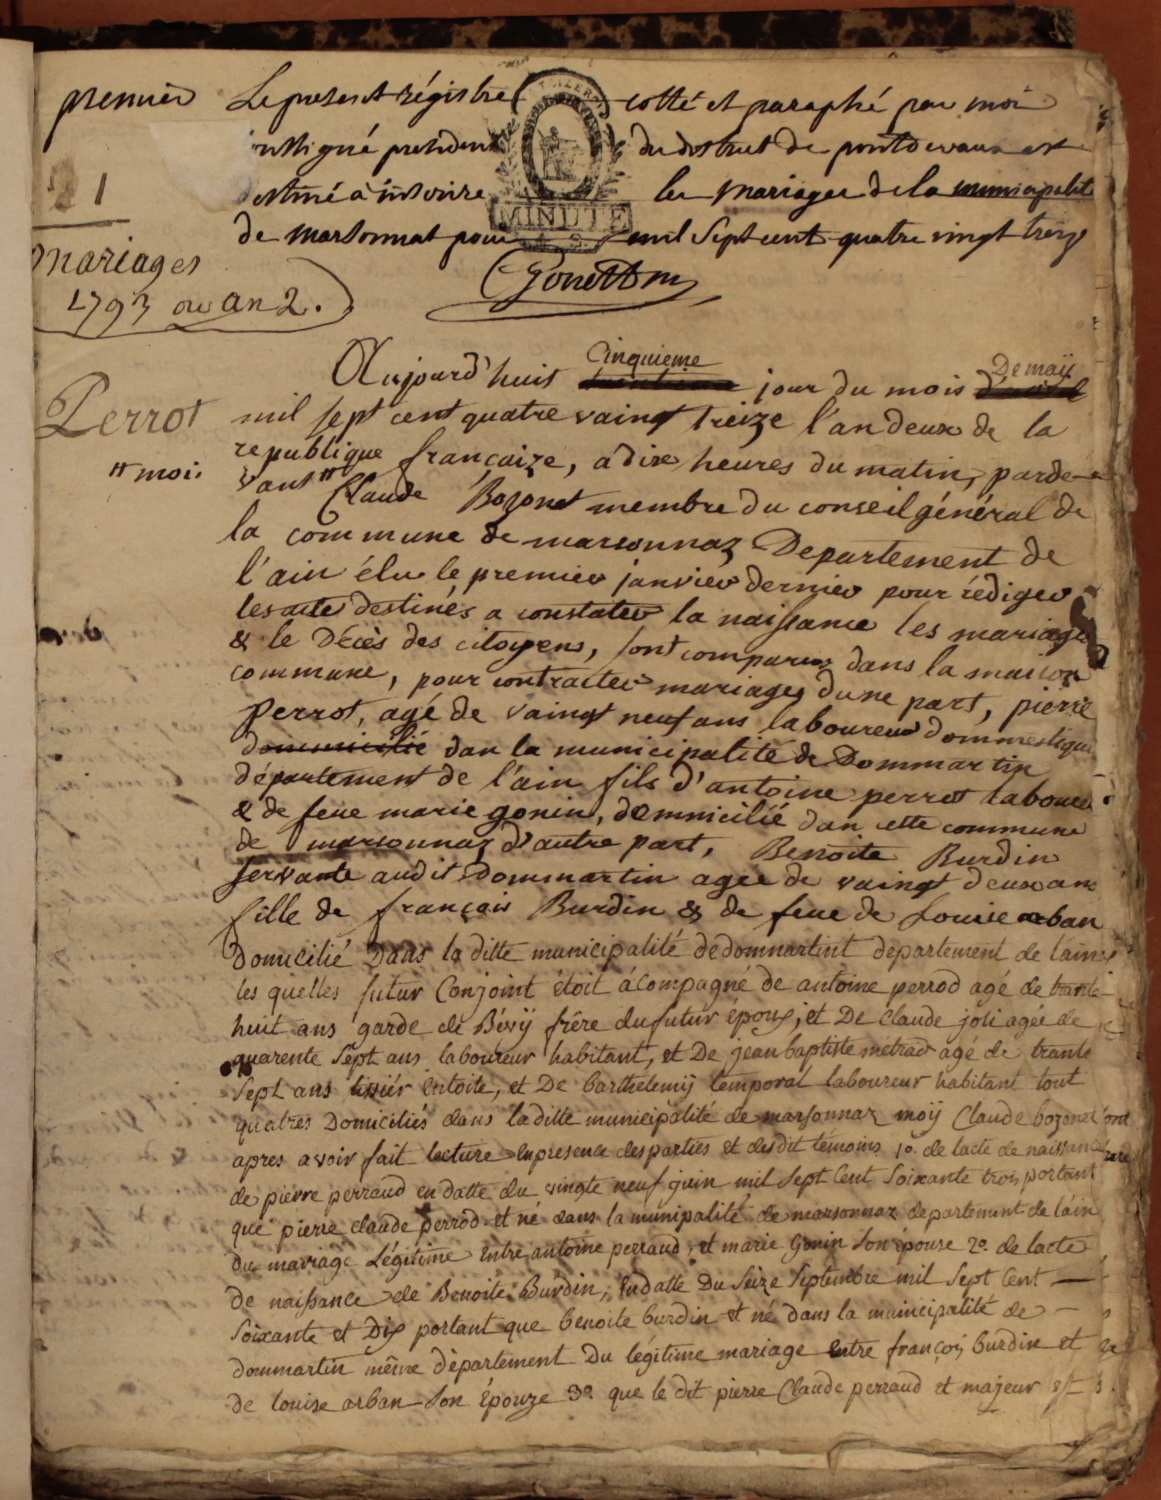 premier
Le present régistre cotté et paraphé par moi
soussigné president du district de pontdevaux est
destiné à inscrire les mariages de la municipalité
de marsonnat pour mil sept cent quatre vingt treize
MINUTE
1
mariages
1793 ou an 2.
Perrot
" moi
Aujourd'huit Cinquieme jour du mois De maÿ
mil sept cent quatre vaingt treize l'an deux de la
republique françaize, à dix heures du matin, parde-
vant " Claude Bozonet membre du conseil général de
la commune de marsonnaz Departement de
l'ain élu le premier janvier dernier pour rédiger
les acte destinés a constater la naissance les mariage
& le Décès des citoyens, sont comparus dans la maison
commune, pour contracter mariages dune part, pierre
Perrot, agé de vaingt neuf ans laboureur dommestique
dommicilié dan la municipalité de Dommartin
département de l'ain fils d'antoine perrot laboureur
& de feue marie gonin, domnicilié dan cette commune
de marsonnaz d'autre part, Benoite Burdin
servante audit dommartin agée de vaingt deux ans
fille de françois Burdin & de feue de Louise arban
Domicilié Dans la ditte municipalité dedommartint département de lain
les quelles futur Conjoint étoit acompagné de antoine perrod agé de trante
huit ans garde de Béviÿ frére du futur époux, et De Claude joli agée de
quarente Sept ans laboureur habitant, et De jean baptiste metrad agé de trante
Sept ans tissiér entoite, et De barthelemiÿ temporal laboureur habitant tout
quatres Domiciliés dans la ditte municipalité de marsonnaz moÿ Claude bozonet
apres avoir fait lecture en presence des parties et des dit témoins 1o. de lacte de naissance
de pierre perraud en datte du vingte neuf juin mil Sept Cent Soixante trois portant
que pierre claude perrod et né dans la munipalité de marsonnaz departement de láin
du mariage Légitime entre antoine perraud, et marie Gonin Son épouse 2o. de lacte
de naissance de Benoite Burdin, en datte Du Seize Septembre mil Sept Cent
Soixante et Dix portant que benoite burdin et né dans la municipalité de
dommartin même département Du légitime mariage entre françois burdin et
de louise arban Son Épouze 3o. que le dit pierre Claude perraud et majeur